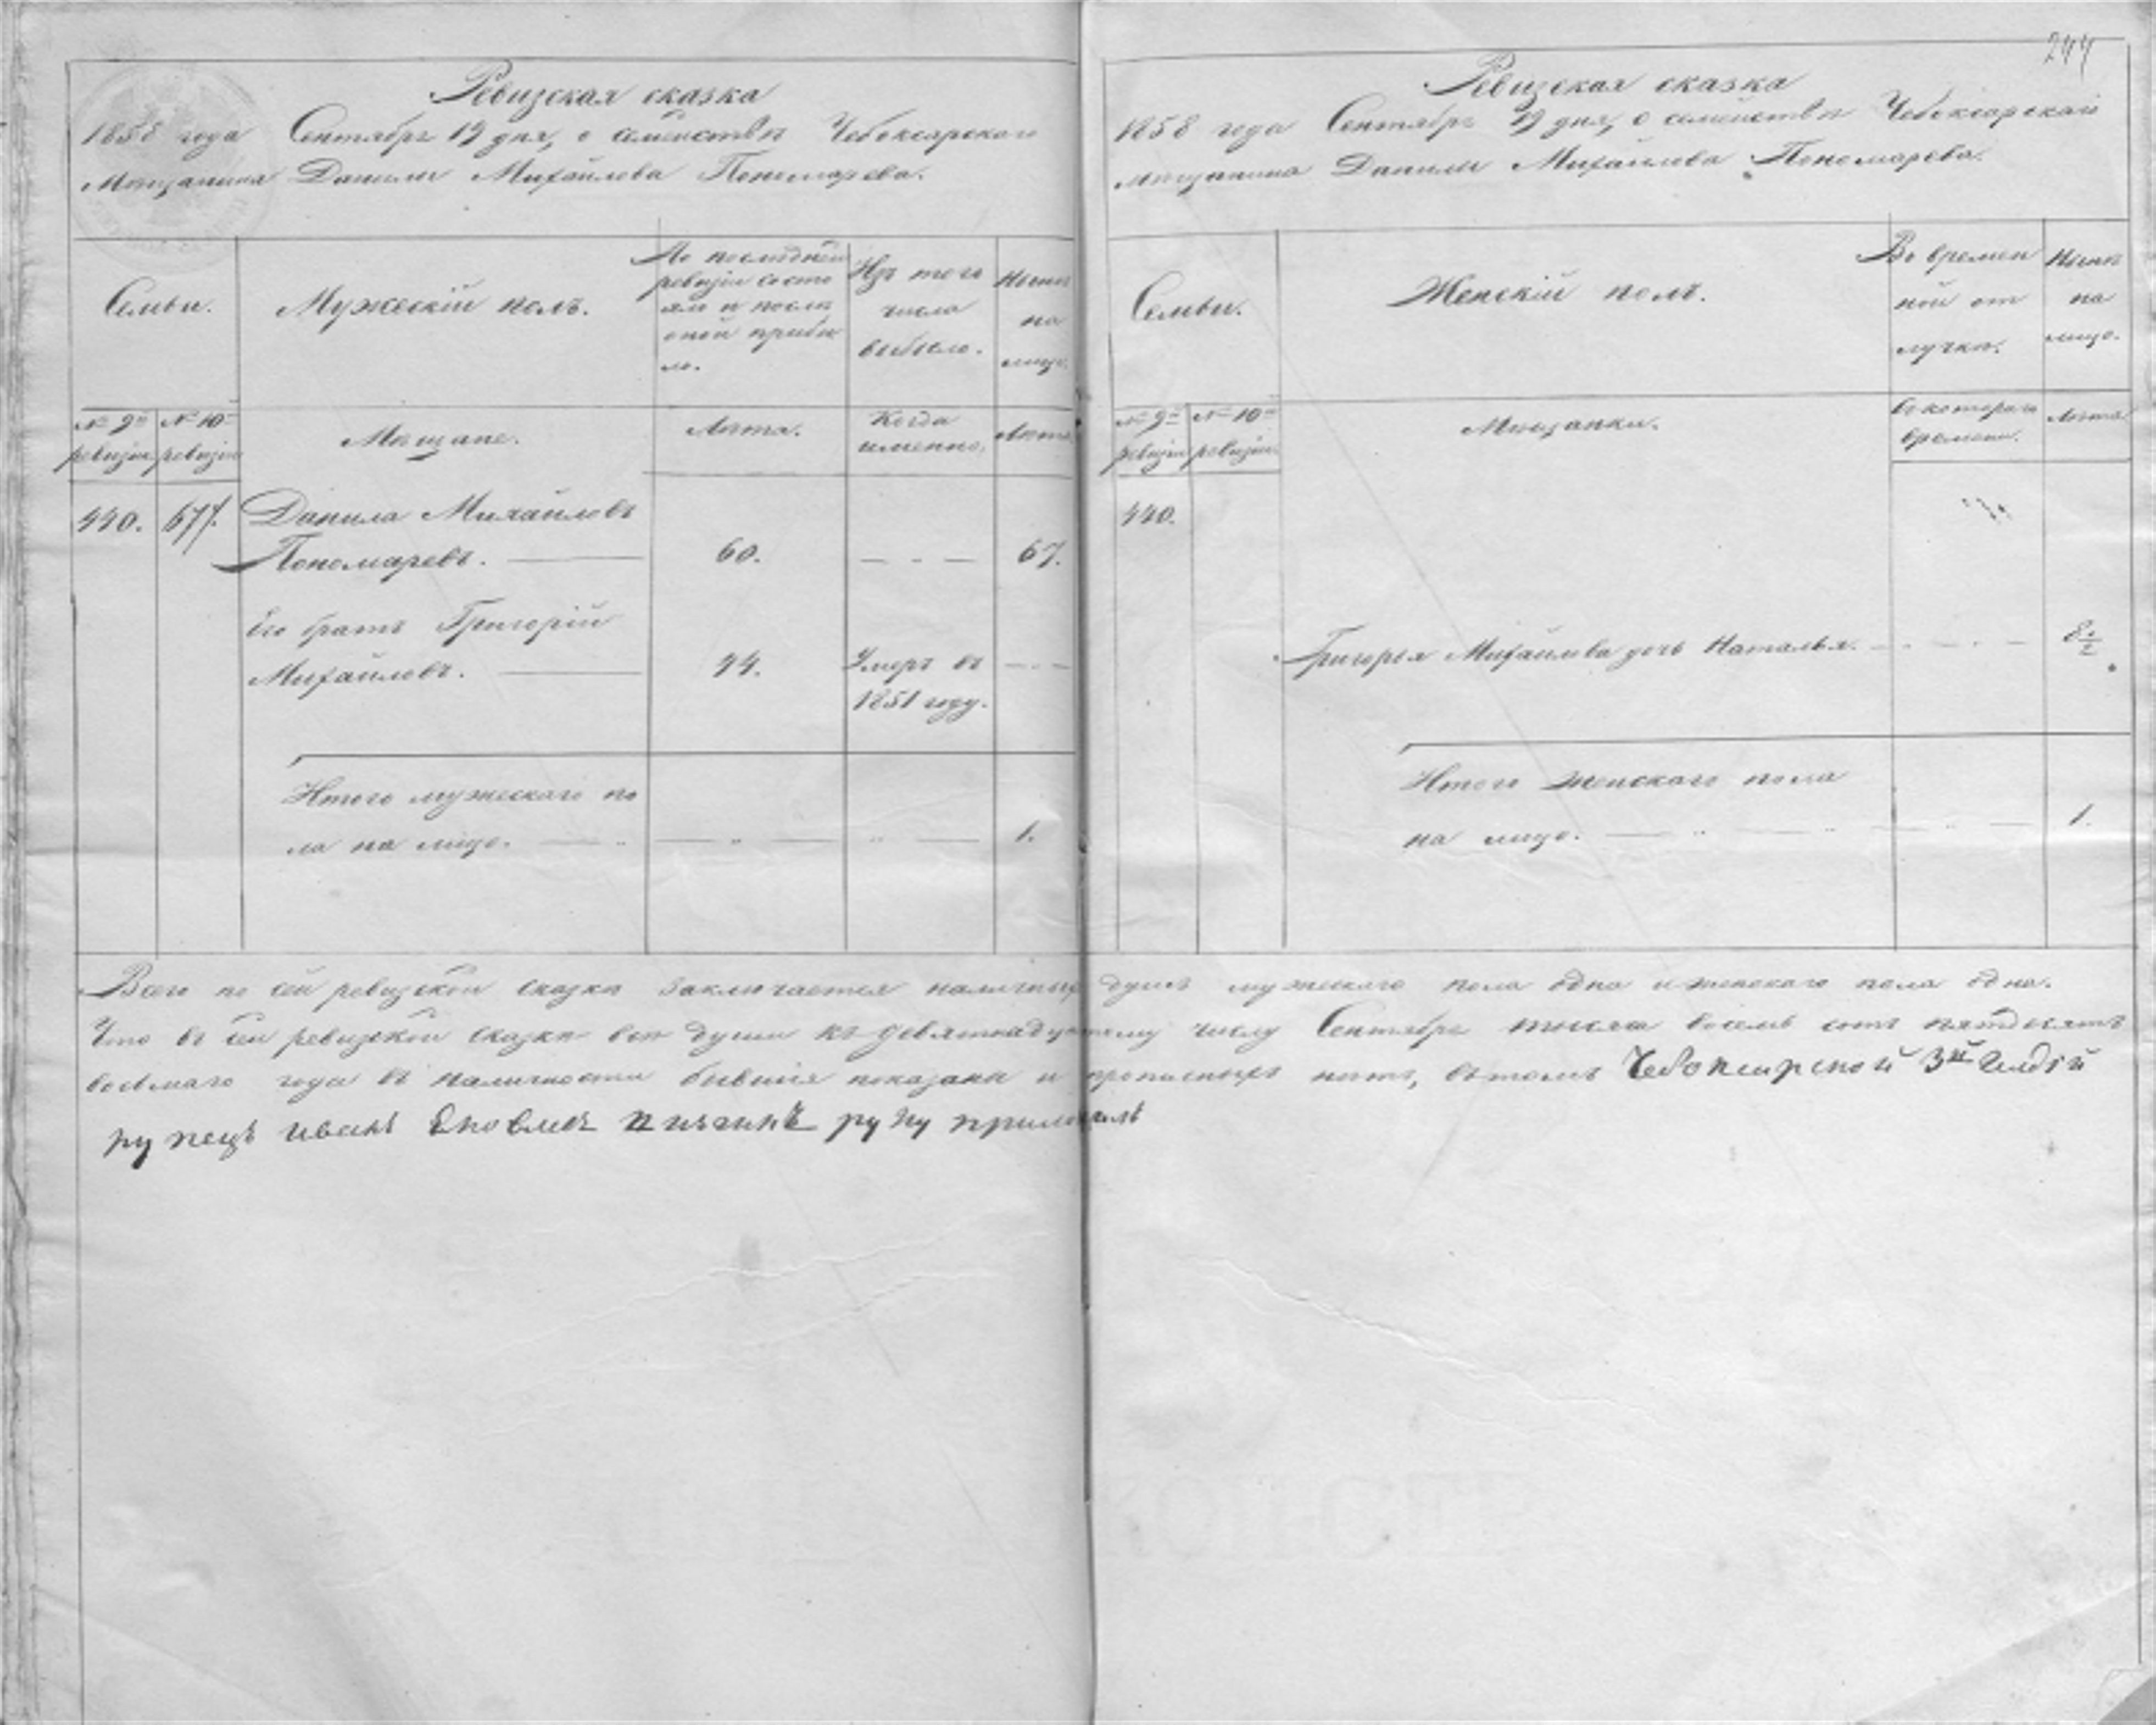 244
Ревизская сказка
1858 года Сентября 19 дня, о семействѣ Чебоксарскаго
Мѣщанина Данилы Михайлова Пономарева.
Семьи.
Мужескій полъ.
По послѣдней
ревизіи состо
яло и послѣ
оной прибы
ло.
Изъ того
числа
выбыло.
Нынѣ
на
лицо.
№ 9й
ревизіи
№ 10й
ревизіи
Мѣщане.
Лѣта.
Когда
именно.
Лѣта
440. 677. Данила Михайловъ
Пономаревъ. 60. 67.
Его братъ Григорій
Михайловъ. 44. Умеръ въ
1851 году.
Итого мужескаго по
ла на лицо. 1.
Ревизская сказка
1858 года Сентября 19 дня, о семействѣ Чебоксарскаго
мѣщанина Данилы Михайлова Пономарева.
Семьи.
Женскій полъ.
Во времен
ной от
лучкѣ.
Нынѣ
на
лицо.
№ 9й
ревизіи
№ 10й
ревизіи
Мѣщанки.
Съ котораго
времени.
Лѣта
440.
Григорья Михайлова дочь Наталья.
Итого женскаго пола
на лицо. 1.
Всего по сей ревизской сказкѣ заключается наличныхъ душъ мужескаго пола одна и женскаго пола одна.
Что въ сей ревизской сказкѣ все души къ девятнадцатому числу Сентября тысяча восемь сотъ пятдесятъ
восьмаго года въ наличности бывшія показаны и прописныхъ нѣтъ, въ томъ Чебоксарской 3й Гилдіи
купецъ иванъ Яковлев руку приложилъ